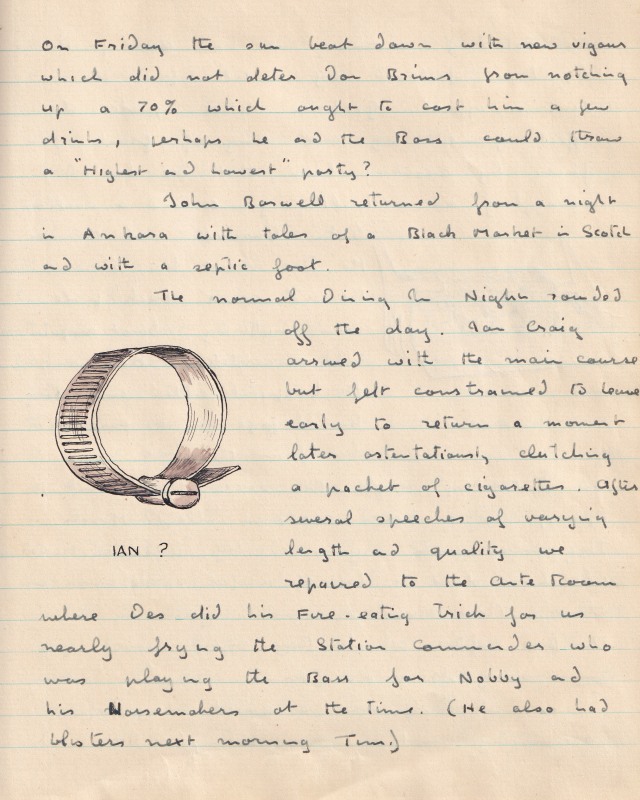 On Friday the sun beat down with new vigour
which did not deter Don Brims from notching
up a 70% which ought to cost him a few
drinks, perhaps he and the Boss could throw
a "Highest and Lowest" party?
John Boswell returned from a night
in Ankara with tales of a Black Market in Scotch
and with a septic foot.
The normal Dining In Night rounded
off the day. Ian Craig
arrived with the main course
but felt constrained to leave
early to return a moment
later ostentatiously clutching
a packet of cigarettes. After
several speeches of varying
length and quality we
repaired to the Ante Room
where Des did his Fire-eating Trick for us
nearly frying the Station Commander who
was playing the Bass for Nobby and
his Noisemakers at the time. (He also had
blisters next morning Tim.)
IAN ?